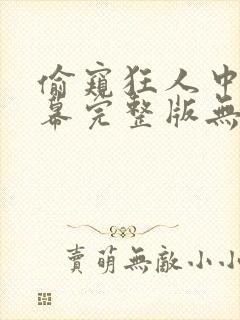 偷窺狂人中
幕完整版無
賣萌無敵小小